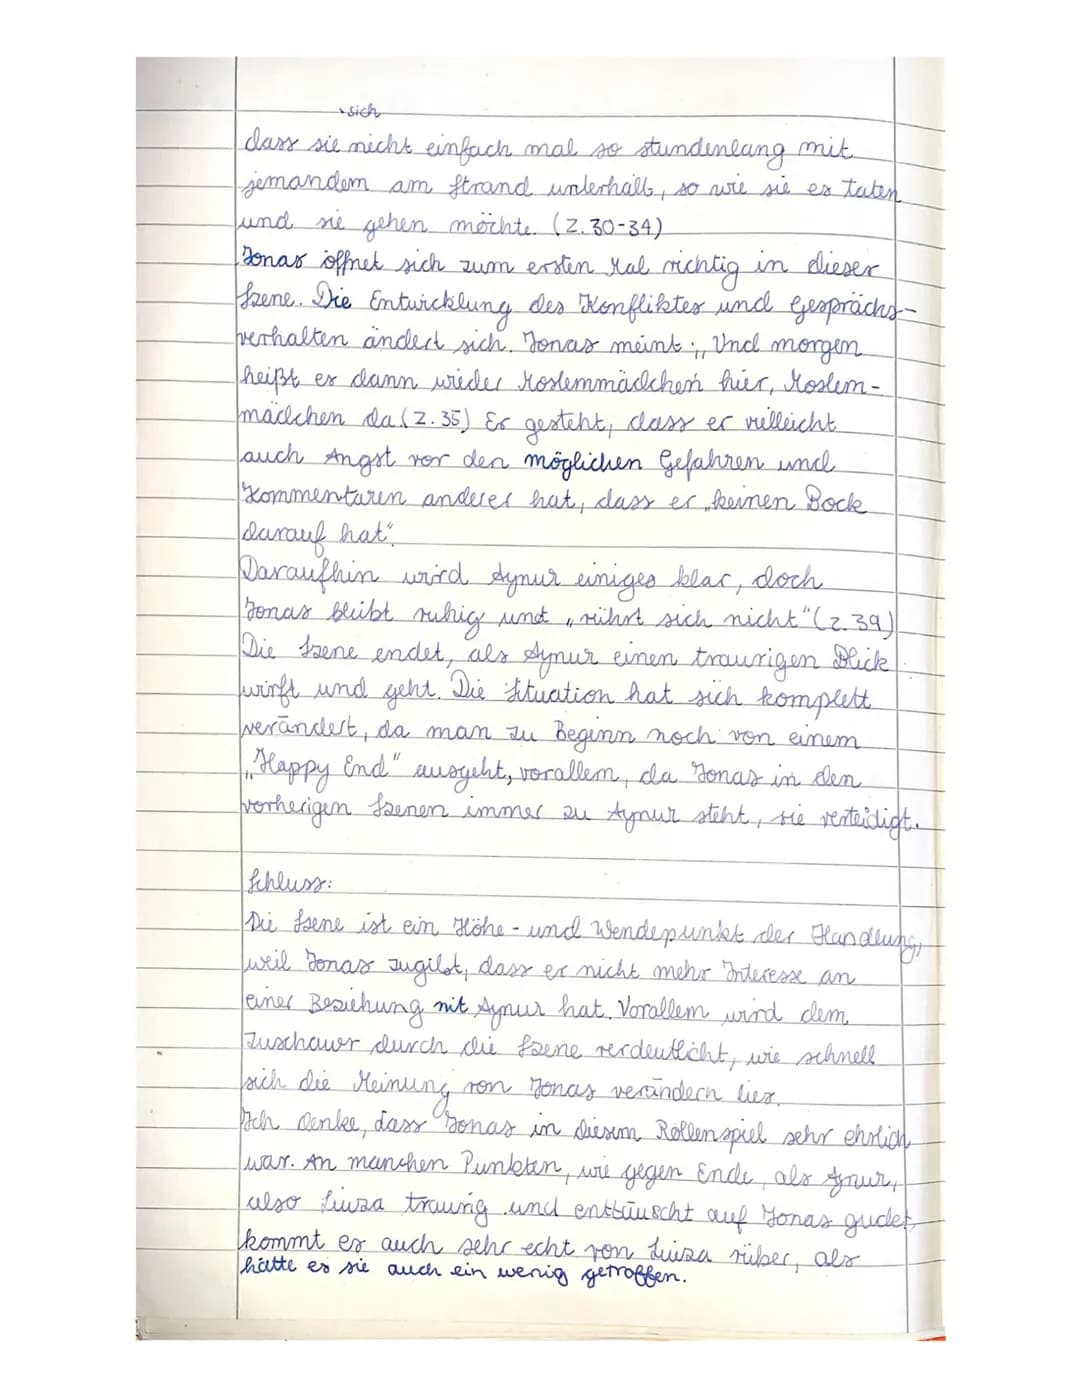 sich
dass sie nicht einfach mal so stundenlang mit
jemandem am Strand unterhält, so wie sie es taten
und sie gehen möchte. (Z.30-34)
Jonas öffnet sich zum ersten Mal richtig in dieser
Szene. Die Entwicklung des Konfliktes und Gesprächs-
verhalten ändert sich. Jonas meint: „Und morgen
heißt es dann wieder Moslemmädchen hier, Moslem-
mädchen da.(Z.35) Er gesteht, dass er vielleicht
auch Angst vor den möglichen Gefahren und
Kommentaren anderer hat, dass er „keinen Bock
darauf hat".
Daraufhin wird Aynur einiges klar, doch
Jonas bleibt ruhig und „rührt sich nicht" (Z.39)
Die Szene endet, als Aynur einen traurigen Blick
wirft und geht. Die Situation hat sich komplett
verändert, da man zu Beginn noch von einem
„Happy End" ausgeht, vorallem, da Jonas in den
vorherigen Szenen immer zu Aynur steht, sie verteidigt.
Schluss:
Die Szene ist ein Höhe- und Wendepunkt der Handlung,
weil Jonas zugibt, dass er nicht mehr Interesse an
einer Beziehung mit Aynur hat. Vorallem wird dem
Zuschauer durch die Szene verdeutlicht, wie schnell
sich die Meinung von Jonas verändern lies.
Ich denke, dass Jonas in diesem Rollenspiel sehr ehrlich
war. An manchen Punkten, wie gegen Ende, als Aynur,
also Luiza traurig und enttäuscht auf Jonas gucket,
kommt es auch sehr echt von Luiza rüber, als
hätte es sie auch ein wenig getroffen.